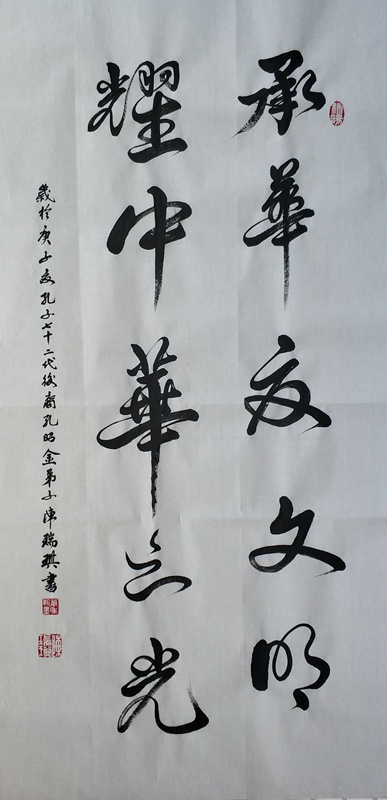 承華夏文明
耀中華之光
歲於庚子夏孔子七十二代後裔孔昭金弟子陳瑞琪書